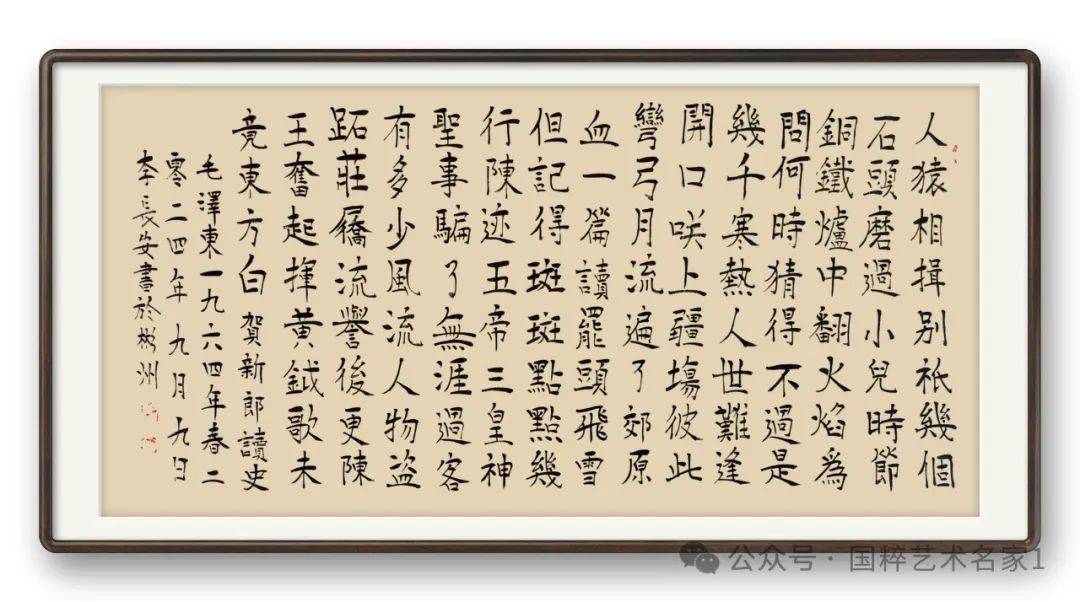 人猿相揖别衹幾個
石頭磨過小兒時節
銅鐵爐中翻火焰為
問何時猜得不過是
幾千寒熱人世難逢
開口咲上疆場彼此
彎弓月流遍了郊原
血一篇讀罷頭飛雪
但記得斑斑點點幾
行陳迹五帝三皇神
聖事騙了無涯過客
有多少風流人物盗
跖莊屩流譽後更陳
王奮起揮黄鉞歌未
竟東方白賀新郎讀史
毛澤東一九六四年春二
零二四年九月九日
李長安書於彬州
公众号·国粹艺术名家1